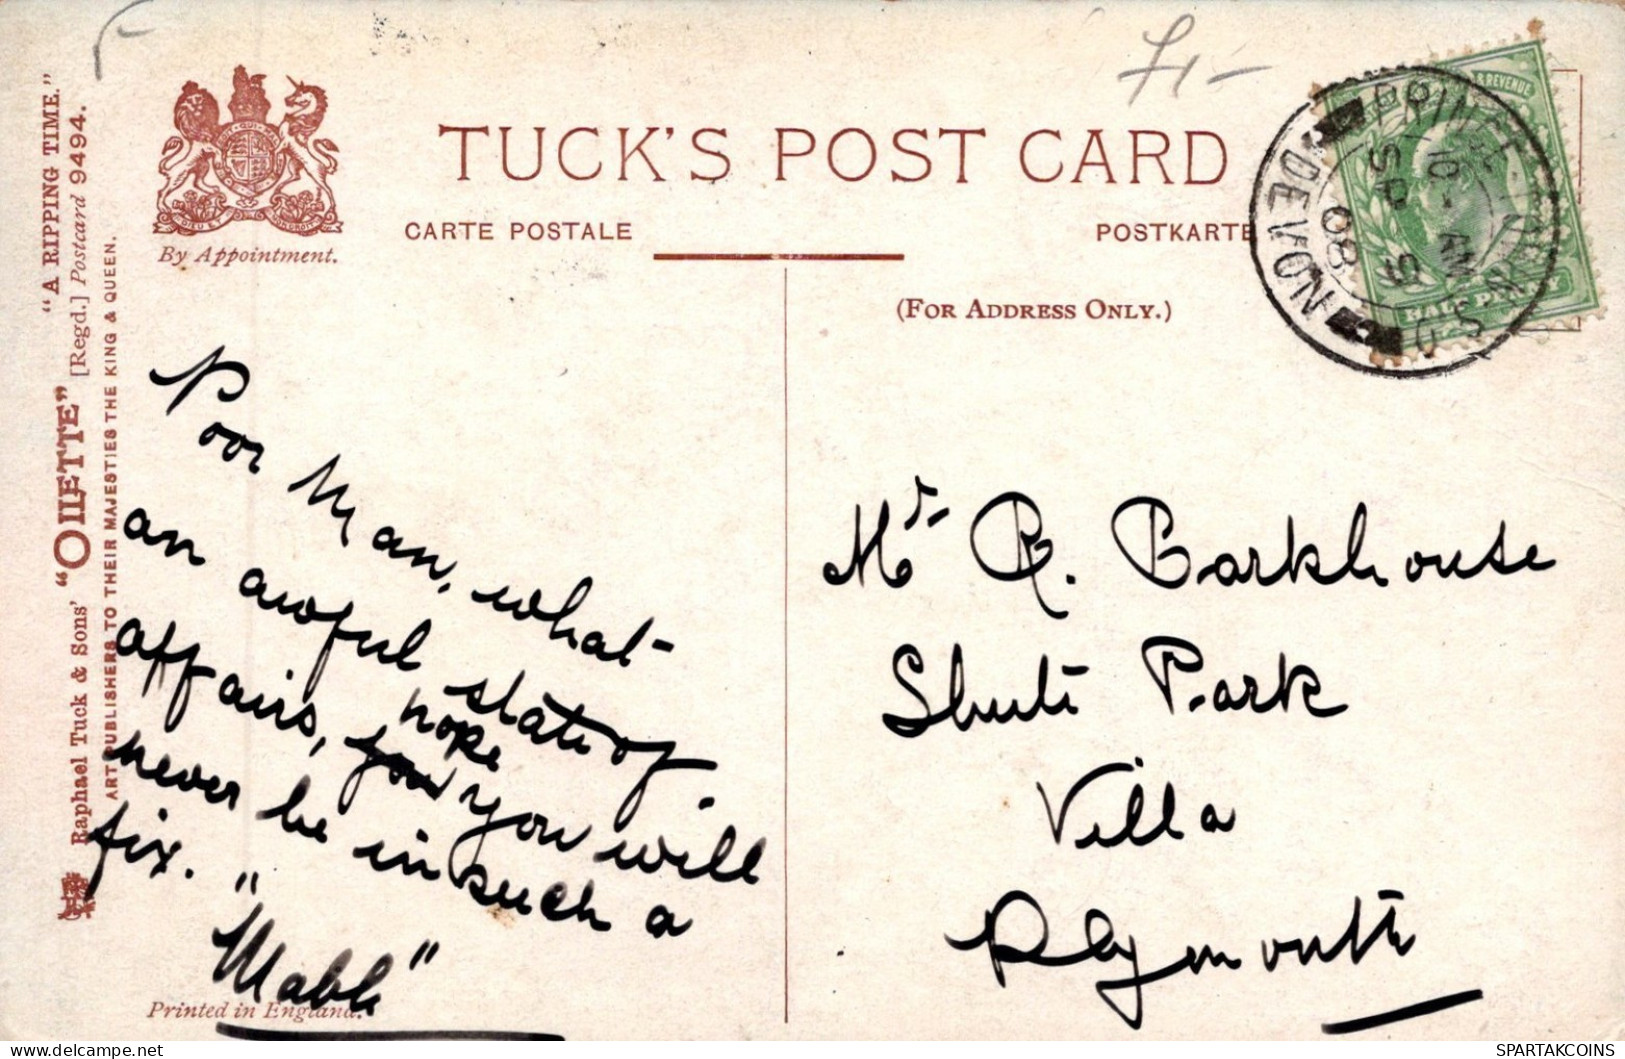 "A RIPPING TIME."
Raphael Tuck & Sons' "OILETTE" [Regd.] Postcard 9494.
ART PUBLISHERS TO THEIR MAJESTIES THE KING & QUEEN.
By Appointment.
TUCK'S POST CARD
CARTE POSTALE
POSTKARTE
(FOR ADDRESS ONLY.)
£1-
PRINCE
10 - AM
SP 5
08
DEVON
& REVENUE
HALFPENNY
Poor Man, what
an awful state of
affairs, hope you will
never be in such a
fix.
"Mable"
Mr R. Barkhouse
Shute Park
Villa
Plymouth
Printed in England.
SPARTAKCOINS